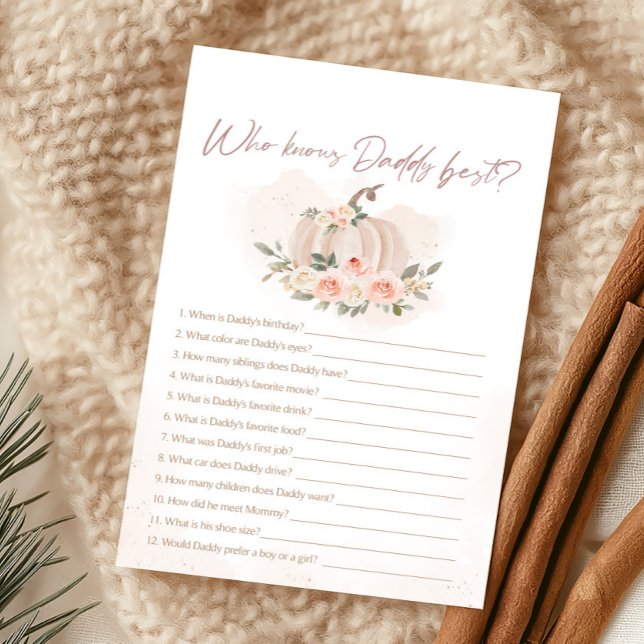 Who knows Daddy best?
1. When is Daddy's birthday?
2. What color are Daddy's eyes?
3. How many siblings does Daddy have?
4. What is Daddy's favorite movie?
5. What is Daddy's favorite drink?
6. What is Daddy's favorite food?
7. What was Daddy's first job?
8. What car does Daddy drive?
9. How many children does Daddy want?
10. How did he meet Mommy?
11. What is his shoe size?
12. Would Daddy prefer a boy or a girl?